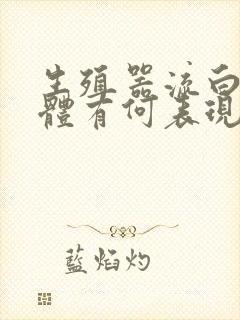 生殖器流白
體有何表現
藍焰灼